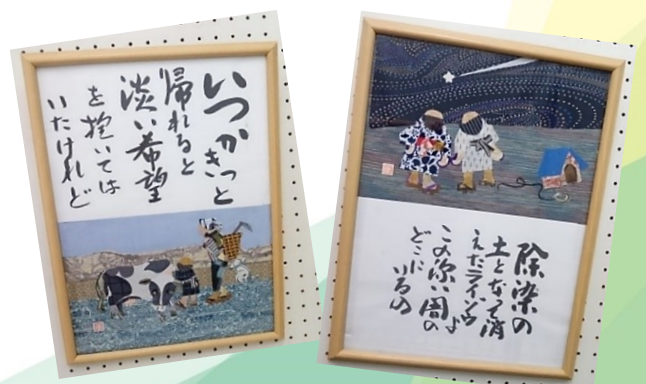 いつかきっと
帰れると
淡い希望
を抱いては
いたけれど
除染の
土となって消
えた
この深い闇の
どこに
いるの